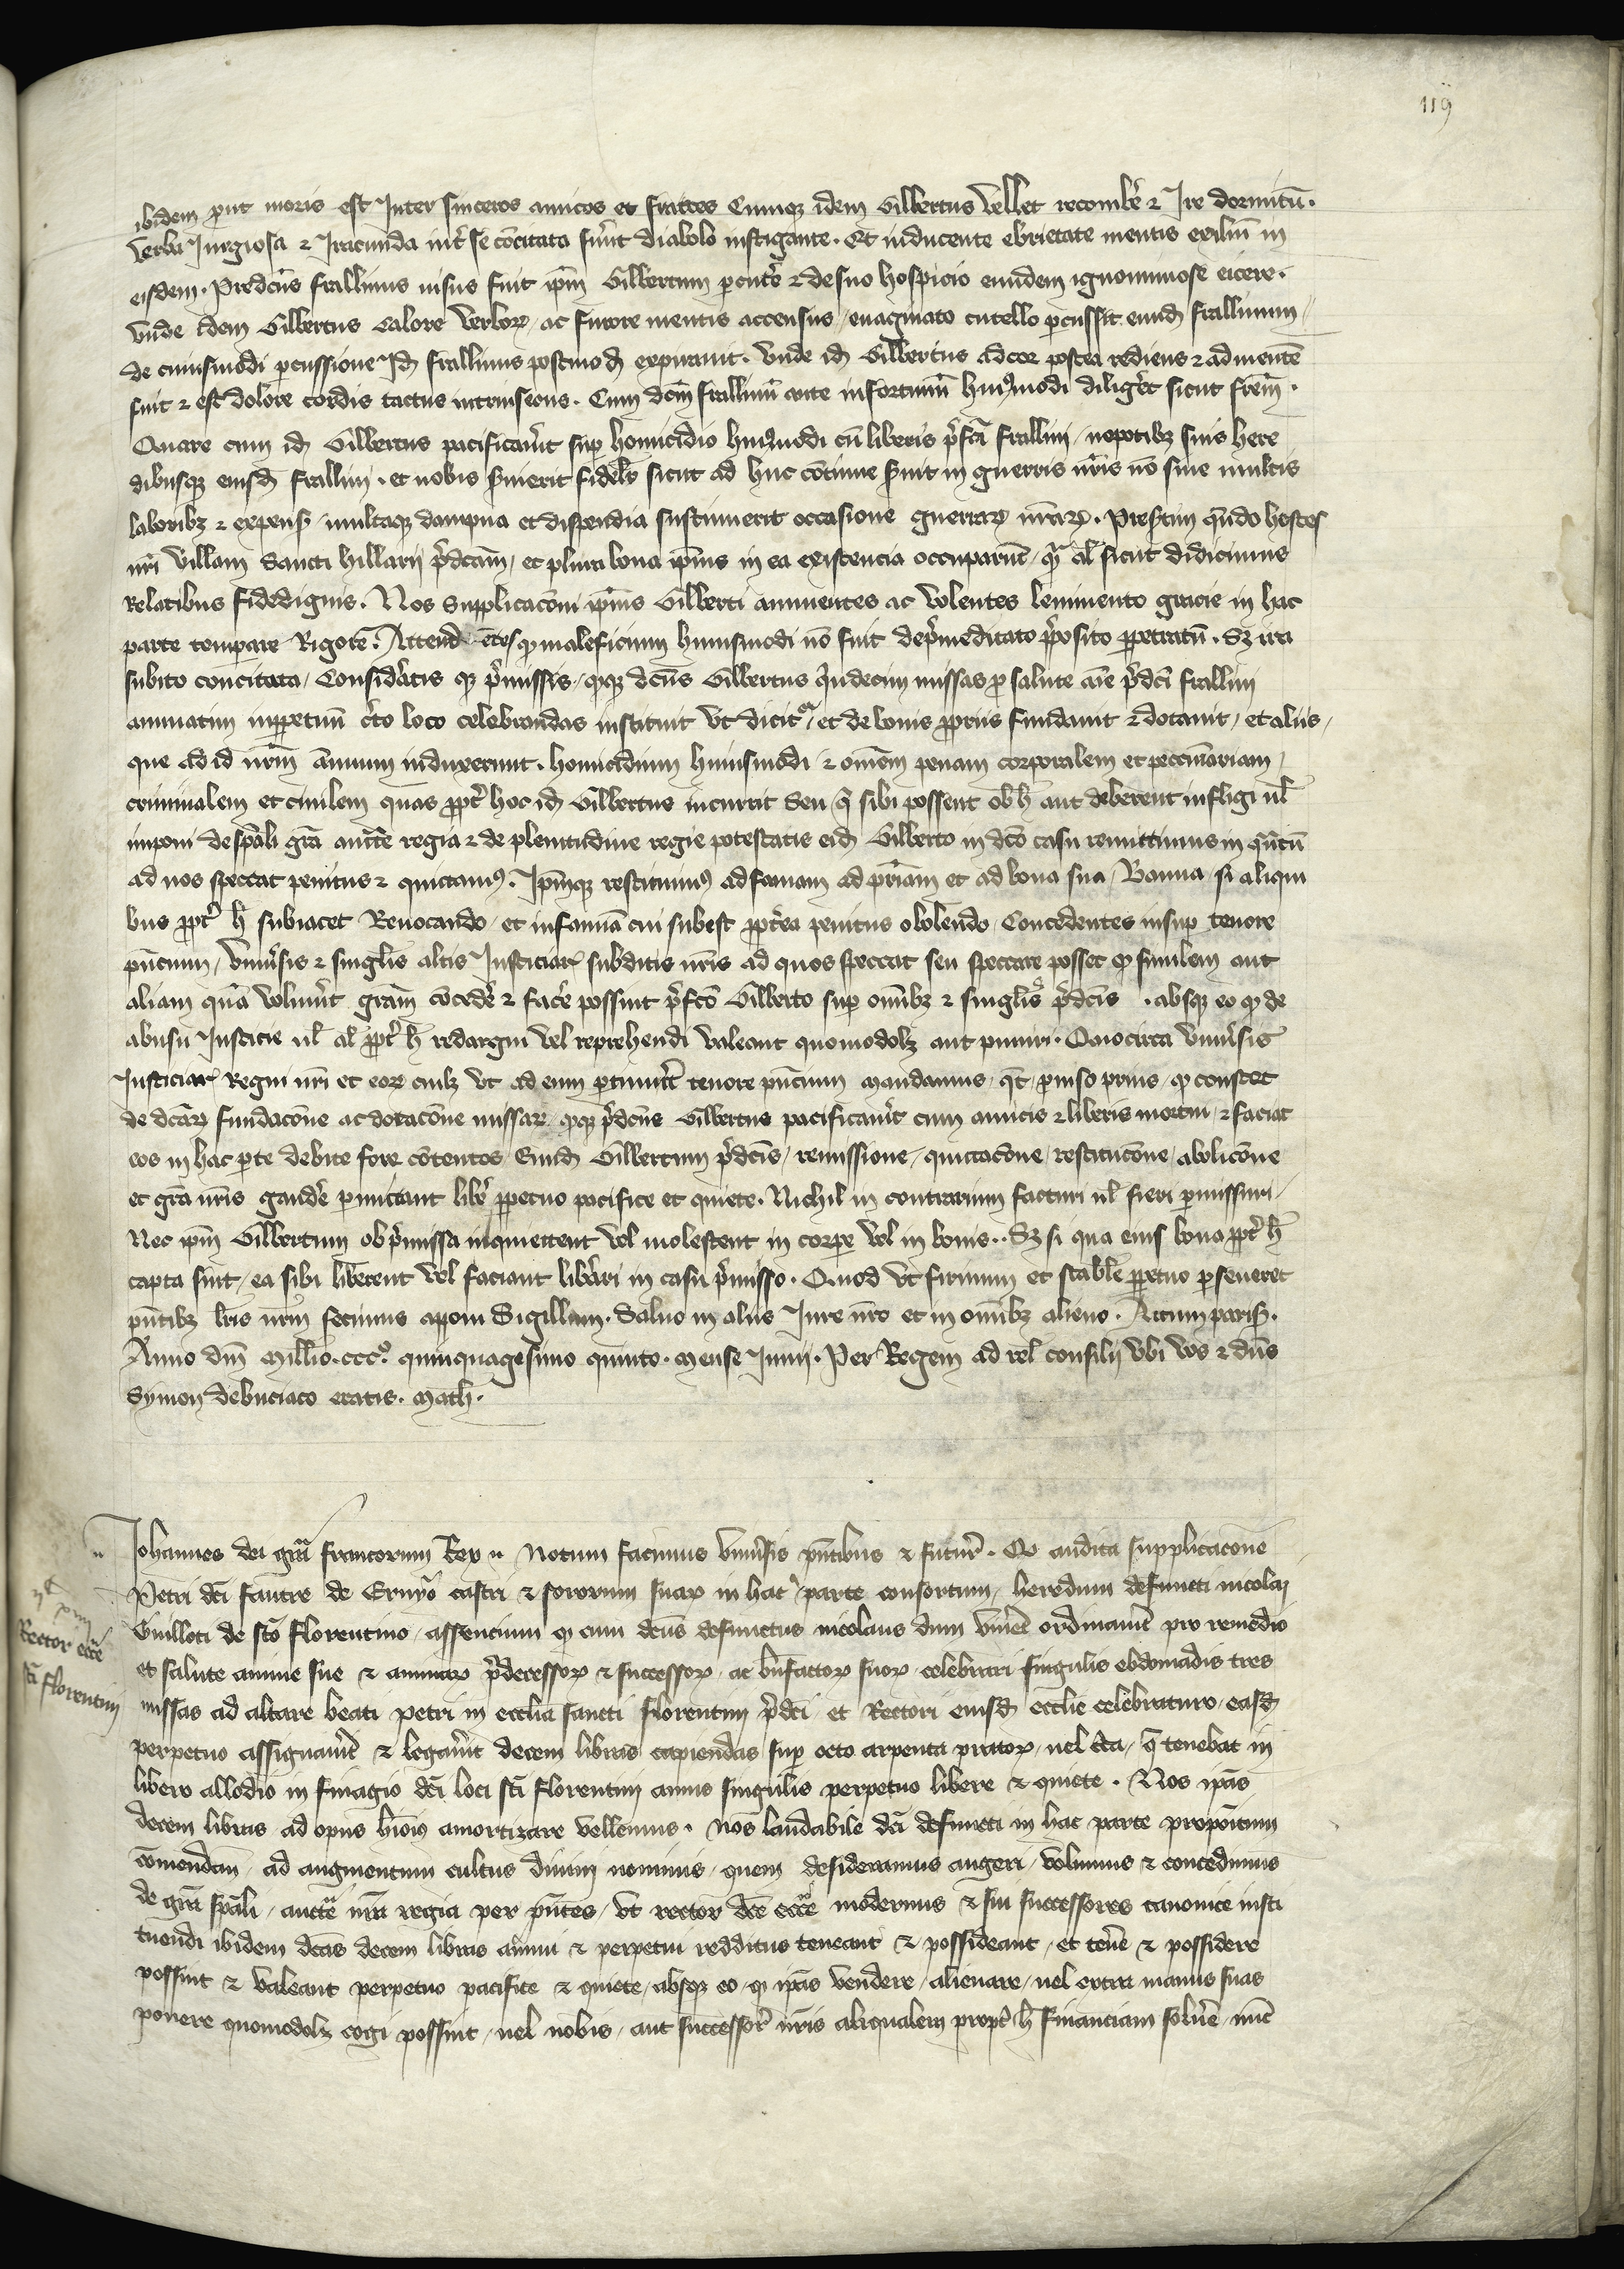 119
ibidem put moris est Inter sinceros amicos et fratres Cumqz idem Gilbertus vellet recombe & Ire dormitū.
verba Iurgiosa & Iracunda int se cōcitata fuūt diabolo instigante. Et inducente ebrietate mentis exiliū in
eisdem. Predcūs frallinus nisus fuit ipm Gilbertum pcute & de suo hospicio eundem ignominiose eicere.
vnde idem Gilbertus calore verboꝝ / ac furore mentis accensus / euaginato cutello pcussit eund frallinum /
de cuiusmodi pcussione Id frallinus postmod expirauit. vnde id Gilbertus ad cor postea rediens & ad mentē
fuit & est dolore cordis tactus intrinsecus. Cum dcm frallinū ante infortuniū huiꝰmodi diliget sicut frem.
Quare cum id Gilbertus pacificauit sup homicidio huiꝰmodi cū liberis pfati frallini / nepotibz suis here
dibusqz eiusd frallini. et nobis suierit fidelr sicut ad huc cōtinue suit in guerris nris nō sine multis
laboribz & expens / multaqz dampna et dispendia sustinuerit occasione guerraꝝ nraꝝ. Presertim qndo hostes
nri villam Sancti hillarij pdctam / et plura bona ipius in ea existencia occuparūt / qr al sicut didicimus
Relatibus fidedignis. Nos Supplicacōni ipius Gilberti annuentes ac volentes leninento gracie in hac
parte temperare Rigorē. Attendētes ꝙ maleficium huiusmodi nō fuit de pmeditato pposito ppetratū. Sz ira
subito concitata / Consideratis qz pmissis / ꝙqz dcūs Gilbertus qndecim missas p salute aīe pdci frallini
annuatim inppetuū cto loco celebrandas instituit vt dicit / et de bonis ppriis fundauit & dotauit / et aliis /
que ad id nrm animum induxerunt. homicidium huiusmodi & omēm penam corporalem et peccuniariam /
criminalem et ciuilem quas ppt hoc id Gilbertus incurrit Seu q sibi possent ob h aut deberent infligi ul
imponi de spāli gra aucte regia & de plenitudine regie potestatis eid Gilberto in dco casu remittimus in qntū
ad nos spectat penitus & quictamꝰ. Ipmqz restituimꝰ ad famam ad priam et ad bona sua / Banna si aliqui
bus ppt h subiacet Reuocando / et infamiā cui subest pptea penitus abolendo / Concedentes insup tenore
pncium / vniusis & singlis aliis Iusticiar subditis nris ad quos spectat seu spectare posset ꝙ similem aut
aliam quā voluint gram cōcede & face possint pfco Gilberto sup omibz & singlis pdcis . absqz eo ꝙ de
abusu Iusticie ul al ppt h redargui vel reprehendi valeant quomodolz aut puniri. Quocirca vniusis
Iusticiar Regni nri et eoꝝ cuilz vt ad eum ptinuit tenore pncium mandamus / qt / puiso prius / ꝙ constet
de dcaꝝ fundacōne ac dotacōne missaꝝ / ꝙqz pdcūs Gilbertus pacificauit cum amicis & liberis mortui / & faciat
eos in hac pte debite fore cōtentos / Eund Gilbertum pdcis / remissione / quictacōne / restitucōne / abolicōne
et gra nris gaude pmittant libe ppetuo pacifice et quiete. Nichil in contrarium facturi ul fieri pmissuri /
Nec ipm Gilbertum ob pmissa inquietent vel molestent in corpe vel in bonis.. Sz si qua eius bona ppt h
capta sint / ea sibi liberent vel faciant liberi in casu pmisso. Quod vt firmum et stabile ppetuo pseueret
pntibz lris nrm fecimus apponi Sigillum. Saluo in aliis Iure nro et in omibz alieno. Actum paris.
Anno dni Millio. cccº. quinquagesimo quinto. mense Iunij. Per Regem ad rel consilij vbi vos & dns
Symon de buciaco eratis. Math.
Iohannes dei gra francorum Rex. Notum facimus vniusis pntibus & futur. Q audita supplicacōne
Petri dci fautre de Eruyo castri & sororum suaꝝ in hac parte consortum / heredum defuncti nicolai
Guilloti de sco Florentino / assencium ꝙ cum dcus defunctus nicolaus dum viuet ordinauit pro remedio
et salute anime sue & animaꝝ pdecessoꝝ & successoꝝ / ac bnfactoꝝ suoꝝ celebrari singulis ebdomadis tres
missas ad altare beati petri in ecclia sancti Florentini pdci / et Rectori eiusd ecclie celebraturo / easd
perpetuo assignauit & legauit decem libras capiendas sup octo arpenta pratoꝝ / uel cca / q tenebat in
libero allodio in finagio dci loci sci Florentini annis singulis perpetuo libere & quiete. Nos ipas
decem libras ad opus hioi amortizare vellemus. Nos laudabile dci defuncti in hac parte propoitum
cōmendan / ad augmentum cultus diuini nominis / quem desideramus augeri / volumus & concedimus
de gra spali / aucte nra regia per pntes / vt rector dce ecce modernus & sui successores canonice insti
tuendi ibidem dcas decem libras annui & perpetui redditus teneant & possideant / et tene & possidere
possint & valeant perpetuo pacifice & quiete / absqz eo / ꝙ ipas vendere / alienare / uel extra manus suas
ponere quomodolz cogi possint / uel nobis / aut successor nris aliqualem propt h financiam solue / nuc
Rector ecce
sci florentini